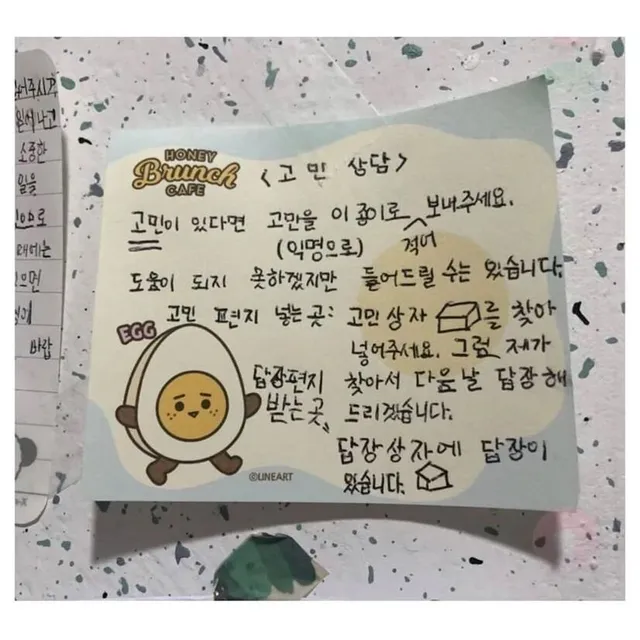 HONEY
Brunch
CAFE
<고민 상담>
고민이 있다면 고민을 이 종이로 보내주세요.
(익명으로) 적어
도움이 되지 못하겠지만 들어드릴 수는 있습니다.
고민 편지 넣는 곳: 고민상자 를 찾아
넣어주세요. 그럼 제가
찾아서 다음날 답장해
드리겠습니다.
EGG
답장편지
받는 곳
답장상자에 답장이
있습니다.
©UNEART
소중한
일을
바랍